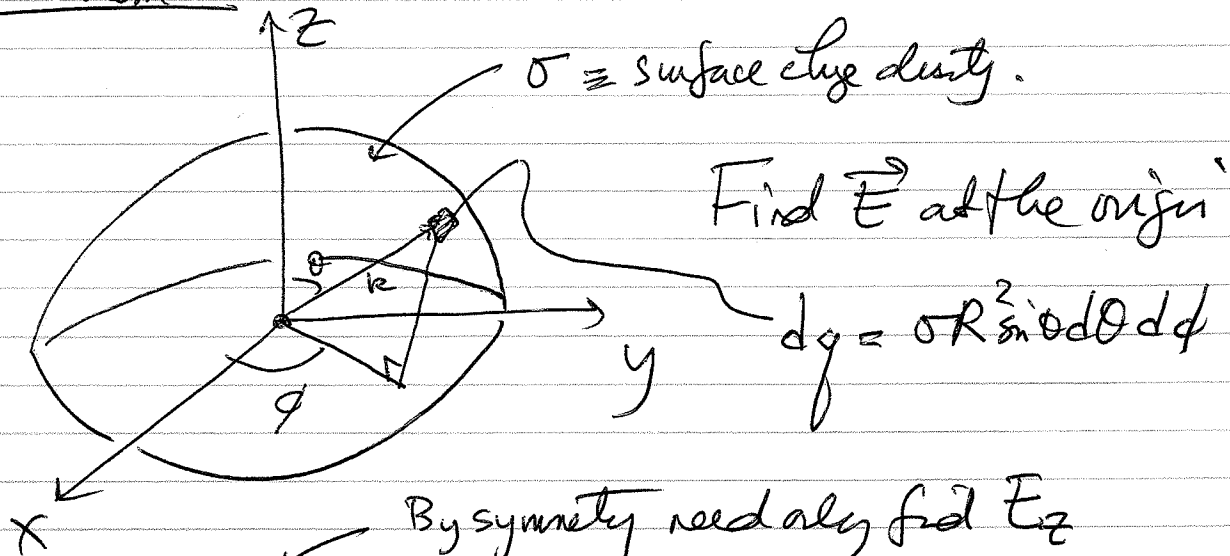 Z
σ ≡ surface chge density.
Find E⃗ at the origin
θ
R
dq = σR² sinθdθdϕ
y
ϕ
X
By symmetry need only find E_z